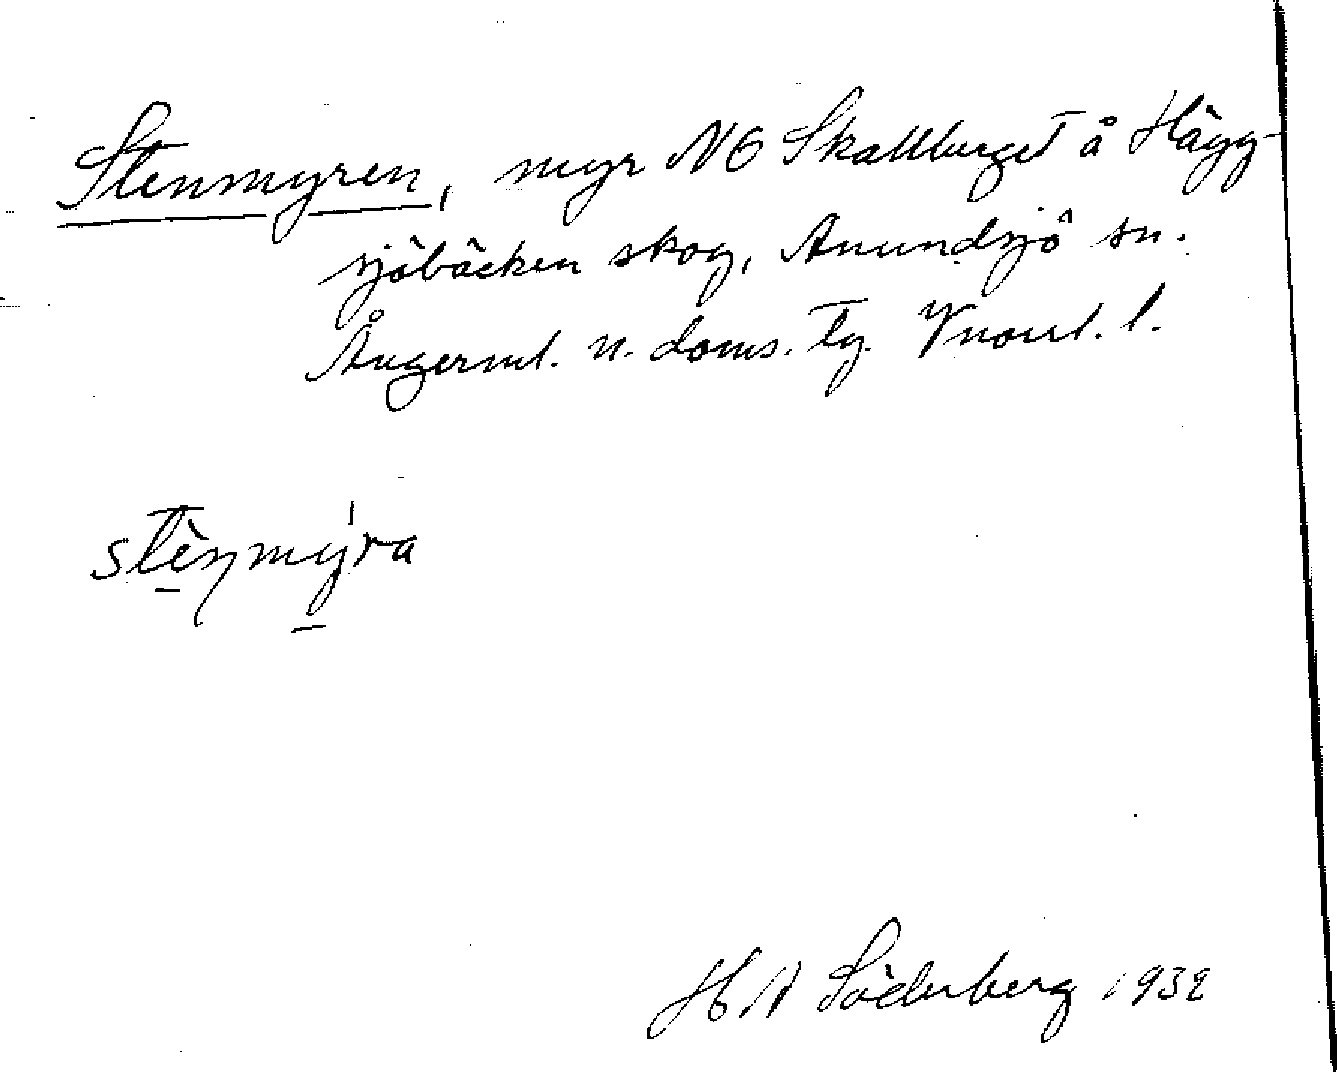 Stenmyren, myr NO Skallberget å Hägg-
sjöbäcken skog, Anundsjö sn.
Ångerml. n. doms. tg. Vnorrl. l.
stèn̥mýra
H A Söderberg 1932